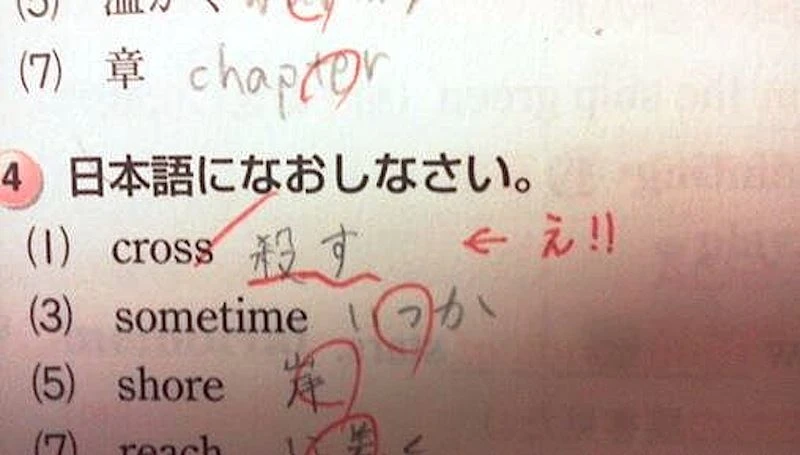 (5) 温かく
(7) 章 chapter
4 日本語になおしなさい。
(1) cross 殺す ← え!!
(3) sometime いつか
(5) shore 岸
(7) reach に着く